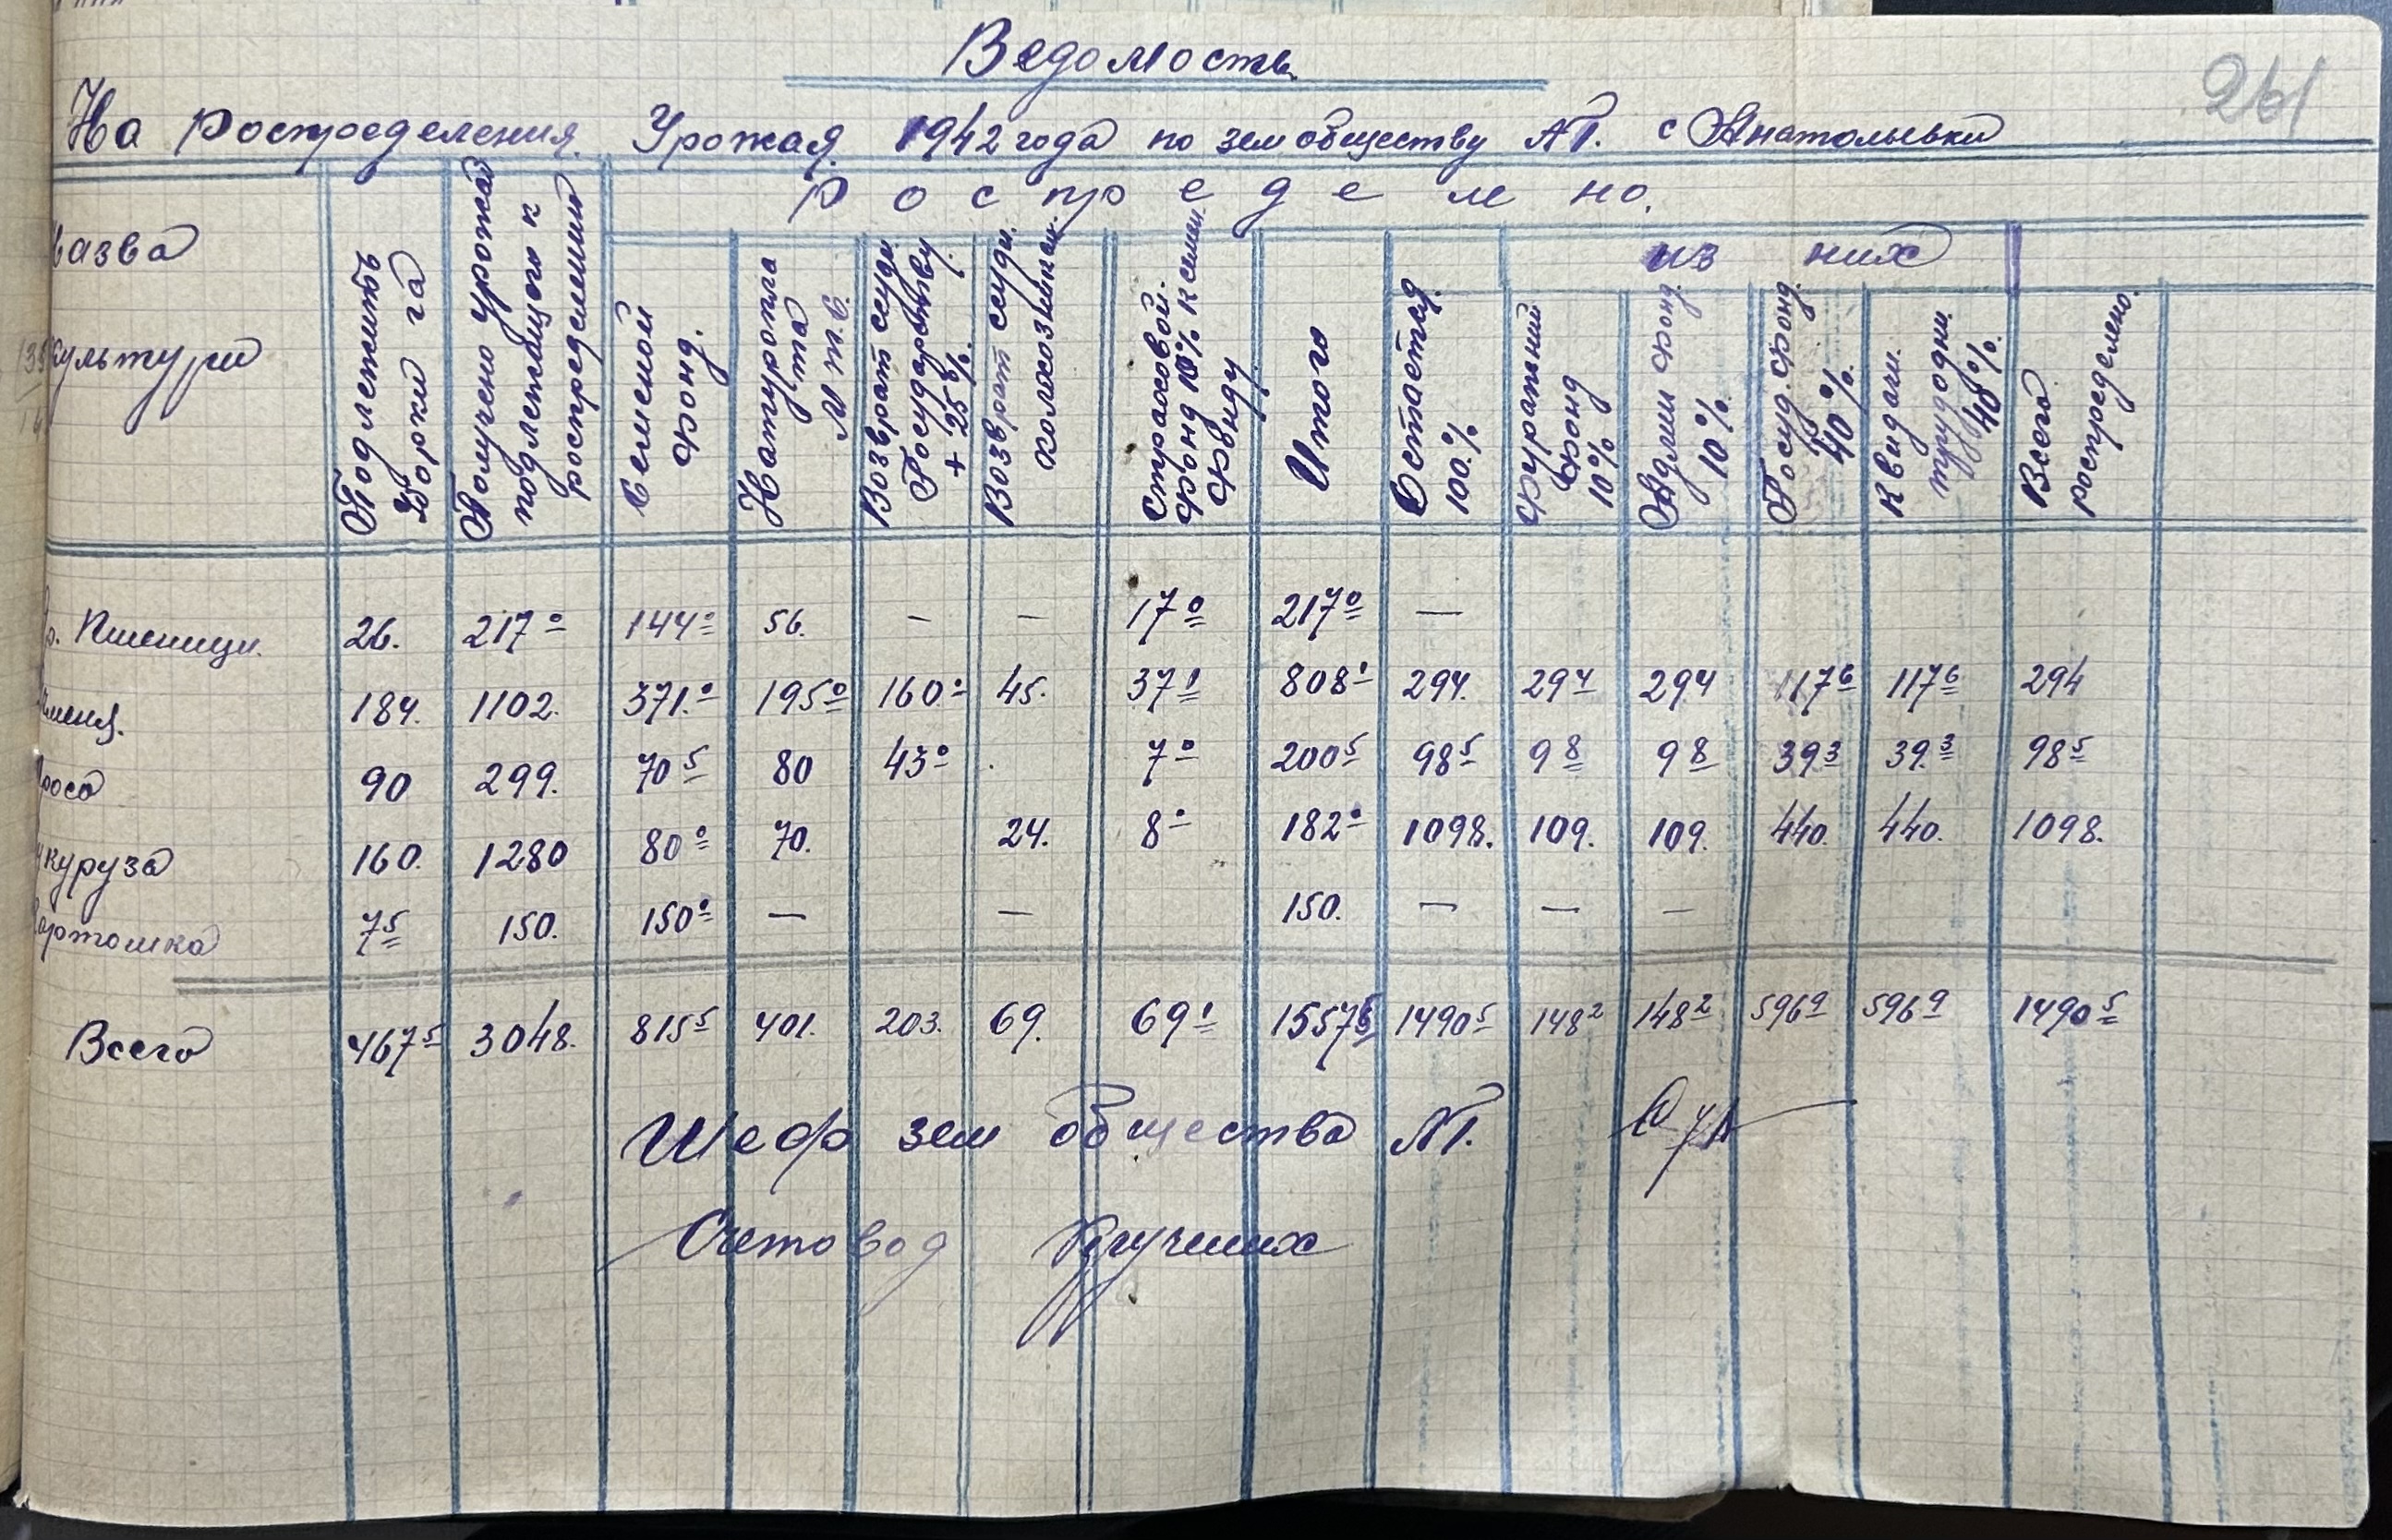 261
Ведомость
На роспределения Урожая 1942 года по земобществу АГ. с Анатольевки
роспределено.
назва культури
Подлежить уборки га
Получено урожая подлежащого к роспределению
Семеной фонд.
Натуроплата МТС.
Возврат ссуди Государству + 25%.
Возврат ссуди колхозникам.
Страховой фонд 10% к семен. фонду
Итого
Остаётся 100%
из них
фуражний фонд 10%
фонд. 10%
Госуд. фонд. 40%
К видачи трудодни. 40%.
Всего роспределено.
Пшеници. 26. 217º 144º 56. – – 17º 217º —
184. 1102. 371.º 195º 160.º 45. 37¹ 808¹ 294. 29⁴ 29⁴ 117⁶ 117⁶ 294
90 299. 70⁵ 80 43º . 7º 200⁵ 98⁵ 9⁸ 9⁸ 39³ 39.³ 98⁵
кукуруза 160. 1280 80º 70. 24. 8º 182º 1098. 109. 109. 440. 440. 1098.
картошка 7⁵ 150. 150º — — 150. — — —
Всего 467⁵ 3048. 815⁵ 401. 203. 69. 69¹ 1557⁶ 1490⁵ 148² 148² 596⁹ 596⁹ 1490⁵
Шеф зем общества АГ.
Счетовод